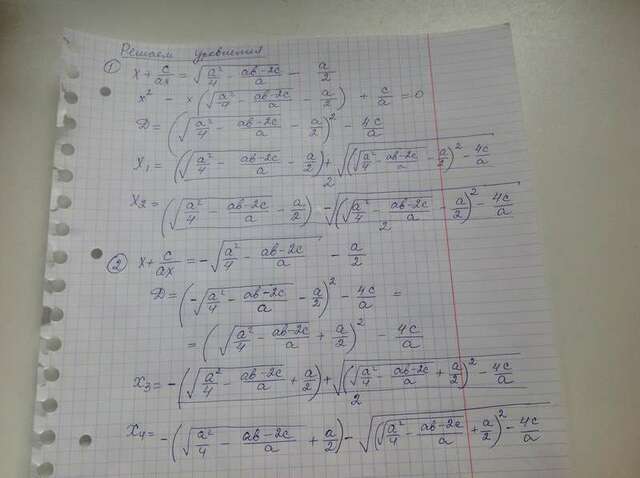 Решаем уравнения
① x + c/(ax) = √(a²/4 - (ab-2c)/a) - a/2
x² - x(√(a²/4 - (ab-2c)/a) - a/2) + c/a = 0
D = (√(a²/4 - (ab-2c)/a) - a/2)² - 4c/a
x₁ = ((√(a²/4 - (ab-2c)/a) - a/2) + √((√(a²/4 - (ab-2c)/a) - a/2)² - 4c/a))/2
x₂ = ((√(a²/4 - (ab-2c)/a) - a/2) - √((√(a²/4 - (ab-2c)/a) - a/2)² - 4c/a))/2
② x + c/(ax) = -√(a²/4 - (ab-2c)/a) - a/2
D = (-√(a²/4 - (ab-2c)/a) - a/2)² - 4c/a =
= (√(a²/4 - (ab-2c)/a) + a/2)² - 4c/a
x₃ = (-(√(a²/4 - (ab-2c)/a) + a/2) + √((√(a²/4 - (ab-2c)/a) + a/2)² - 4c/a))/2
x₄ = -(√(a²/4 - (ab-2c)/a) + a/2) - √((√(a²/4 - (ab-2c)/a) + a/2)² - 4c/a)